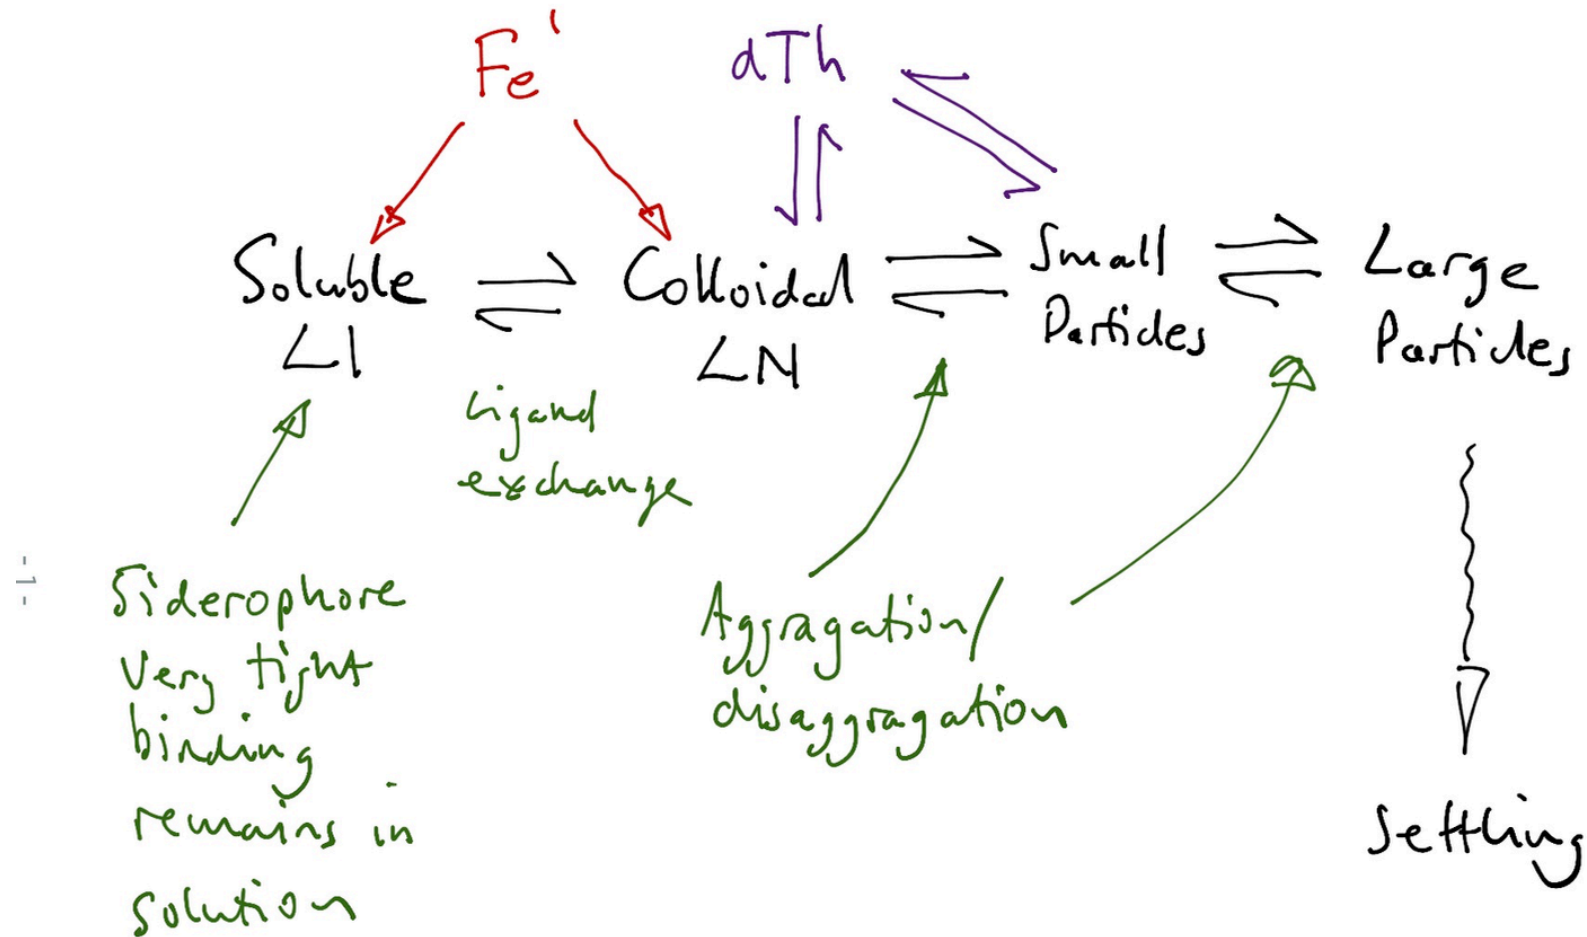 Fe'
dTh
Soluble
L1
Colloidal
LN
Small
Particles
Large
Particles
Ligand
exchange
Siderophore
Very tight
binding
remains in
solution
Aggragation/
disaggragation
Settling
-1-